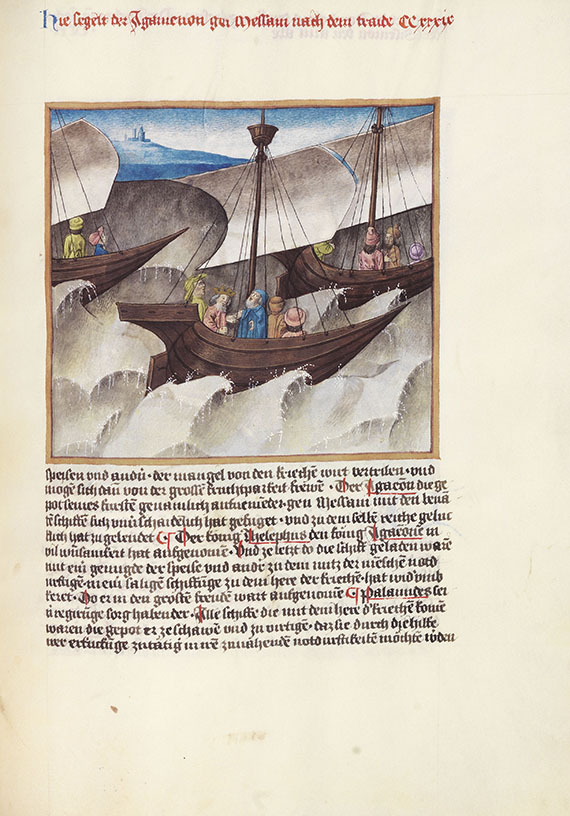 Hie segelt der Agamenon gen Messam nach dem traide CCxxxix
speisen vnd andn̄ · der mangel von den kriechē wirt vertriben · vnd
mogē sich dan̄ von der grossē fruchtparkeit frewē · Der Agacōn die ge
pot seines fursten genamlich aufnemēde · gen Messam mit den lenā
tē schiffē sich vnūschadelich hat gefuget · vnd zu dem selbē reiche geluc
lich hat zu gelendet Der konig Thelephus den konig Agacōnē in
vil wirsamkeit hat aufgenomē · Vnd ze letzt do die schiff geladen warē
mit ein genugde der speise vnd andr̄ zu dem nutz der mēschē notd
urftigē · in em saligē schiffūge zu dem here der kriechē · hat wid̄ vmb
keret · Do er in den grostē freudē wart aufgenomē Palamides sei
n̄ regirūge sorg habender · Alle schiffe die mit dem here d' kriechē komē
waren die gepot er ze schawē vnd zu virtigē · daz sie durch die hilfe
wer erkukūge zutätig in irē zunähendē notdurftikeitē mochtē w̄den